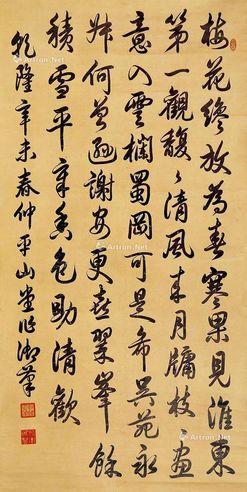 梅花纔放為春寒果見淮東
第一觀馥〻清風来月牖枝〻畫
意入雲欄蜀岡可是希吳苑永
叔何曾遜謝安更喜翠峯餘
積雪平章香色助清歡
乾隆辛未春仲平山堂作御筆
Artron.Net